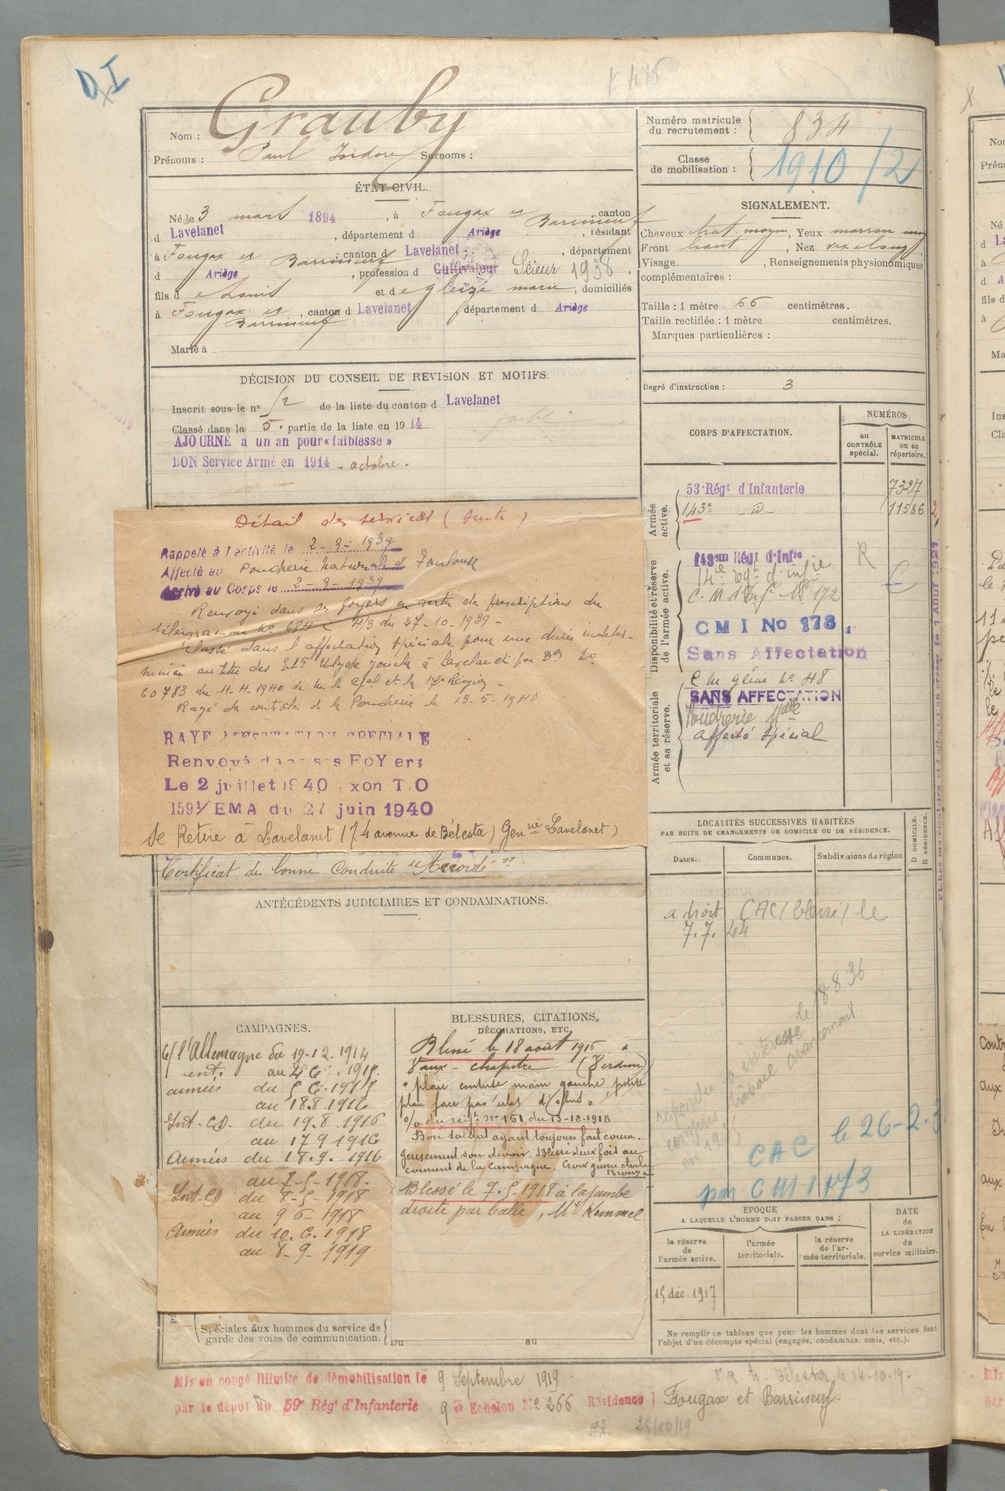 D I
Nom : Grauby
Prénoms : Paul Isidore Surnoms :
ÉTAT CIVIL.
Né le 3 mars 1894, à Fougax et Barrineuf, canton
d Lavelanet, département d Ariège, résidant
à Fougax et Barrineuf, canton d Lavelanet, département
d Ariège, profession d Cultivateur Scieur 1938,
fils de Louis et de Gleize marie, domiciliés
à Fougax et Barrineuf, canton d Lavelanet département d Ariège
Marié à
DÉCISION DU CONSEIL DE REVISION ET MOTIFS.
Inscrit sous le n° 52 de la liste du canton d Lavelanet
Classé dans la 5e partie de la liste en 1914
AJOURNÉ à un an pour « faiblesse »
BON Service Armé en 1914 - octobre.
Détail des services (suite)
Rappelé à l'activité le 2-9-1939
Affecté au Poudrerie Nationale d Toulouse
Arrivé au Corps le 2-9-1939
Renvoyé dans ses foyers en vertu des prescriptions du
télégramme n° 684 4/3 du 27-10-1939-
Classé dans l'affectation spéciale pour une durée indéter-
minée au titre des Ets à Lavelanet par
60783 du 11.4.1940 de Mr le Gal Ct la 17e Région -
Rayé des contrôles de la Poudrerie le 13-5-1940
RAYE AFFECTATION SPECIALE
Renvoyé dans ses FoYers
Le 2 juillet 1940 xon T.O
1591/EMA du 27 juin 1940
Se Retire à Lavelanet 174 avenue de Bélesta (Gen rie Lavelanet)
Certificat de bonne Conduite "Accordé"
ANTÉCÉDENTS JUDICIAIRES ET CONDAMNATIONS.
CAMPAGNES.
c/ l'Allemagne du 19-12-1914
int. au 4 6 1915
armées du 5.6.1915
au 18 8 1916
Int. CD. du 19.8.1916
au 17 9 1916
Armées du 18.9.1916
au 7-5-1918.
Int. CD du 8-5-1918
au 9 6 1918
Armées du 10.6.1918
au 8-9-1919
BLESSURES, CITATIONS,
DÉCORATIONS, ETC.
Blessé le 18 août 1916 à
Vaux-chapitre (Verdun)
"plaie contuse main gauche petite
plaie face par éclats d'obus"
o/o du régt n° 151 du 13-12-1918
Bon soldat ayant toujours fait coura-
geusement son devoir. Blessé deux fois au
cours de la Campagne. Croix guerre étoile
Bronze
Blessé le 7-5-1918 à la jambe
droite par balle, Mt Kemmel
Spéciales aux hommes du service de
garde des voies de communication.
Du au
Mis en congé illimité de démobilisation le 9 Septembre 1919
par le dépôt du 59e Régt d'Infanterie 9e Echelon N° 266 Résidence } Fougax et Barrineuf
Numéro matricule
du recrutement : 834
Classe
de mobilisation : 1910/2
SIGNALEMENT.
Cheveux chat. moyen, Yeux marron moy
Front haut, Nez
Visage , Renseignements physionomiques
complémentaires :
Taille : 1 mètre 66 centimètres.
Taille rectifiée : 1 mètre centimètres.
Marques particulières :
Degré d'instruction : 3
CORPS D'AFFECTATION.
NUMÉROS
AU CONTRÔLE spécial.
MATRICULE OU AU répertoire.
Armée active.
53e Régt d'Infanterie 7324
143e -d°- 11586
Disponibilité et réserve de l'armée active.
143em Régt d'Infie
14e régt d'infie R
C.M. d'Infie N° 172
CMI No 173,
Sans Affectation
Armée territoriale et sa réserve.
C M Génie N° 48
SANS AFFECTATION
Poudrerie Nale
affecté Spécial
LOCALITÉS SUCCESSIVES HABITÉES
PAR SUITE DE CHANGEMENTS DE DOMICILE OU DE RÉSIDENCE.
Dates. Communes. Subdivisions de région D DOMICILE. R RÉSIDENCE.
a droit CAC (blessé) le
7.7.44
CAC le 26-2-3
par CMI 173
EPOQUE
A LAQUELLE L'HOMME DOIT PASSER DANS :
la réserve de l'armée active.
l'armée territoriale.
la réserve de l'armée territoriale.
DATE
de
LA LIBÉRATION
du
service militaire.
15 déc 1917
Ne remplir ce tableau que pour les hommes dont les services font
l'objet d'un décompte spécial (engagés, condamnés, omis, etc.).